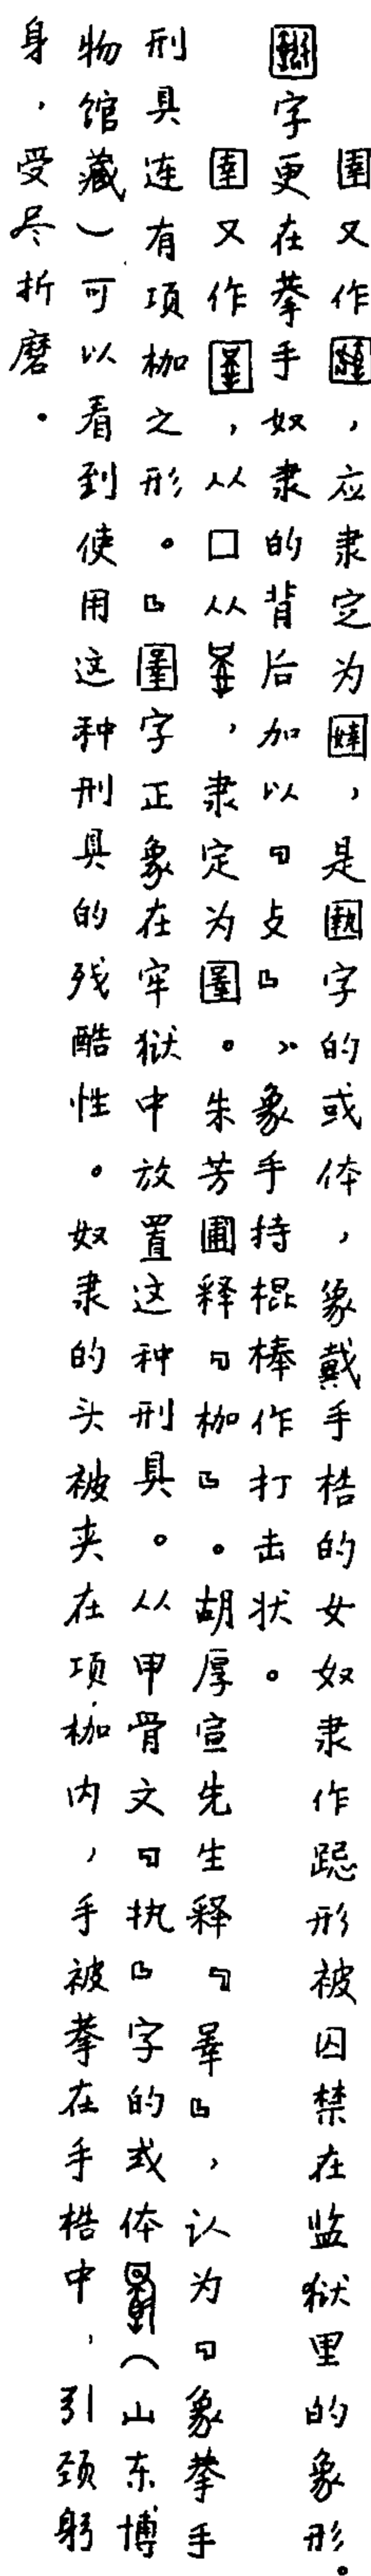 圉又作，应隶定为，是字的或体，象戴手梏的女奴隶作跽形被囚禁在监狱里的象形。
字更在拲手奴隶的背后加以『攴』，象手持棍棒作打击状。
圉又作，从囗从，隶定为圛。朱芳圃释『枷』。胡厚宣先生释『睪』，认为『象拲手
刑具连有项枷之形。』圛字正象在牢狱中放置这种刑具。从甲骨文『执』字的或体（山东博
物馆藏）可以看到使用这种刑具的残酷性。奴隶的头被夹在项枷内，手被拲在手梏中，引颈躬
身，受尽折磨。